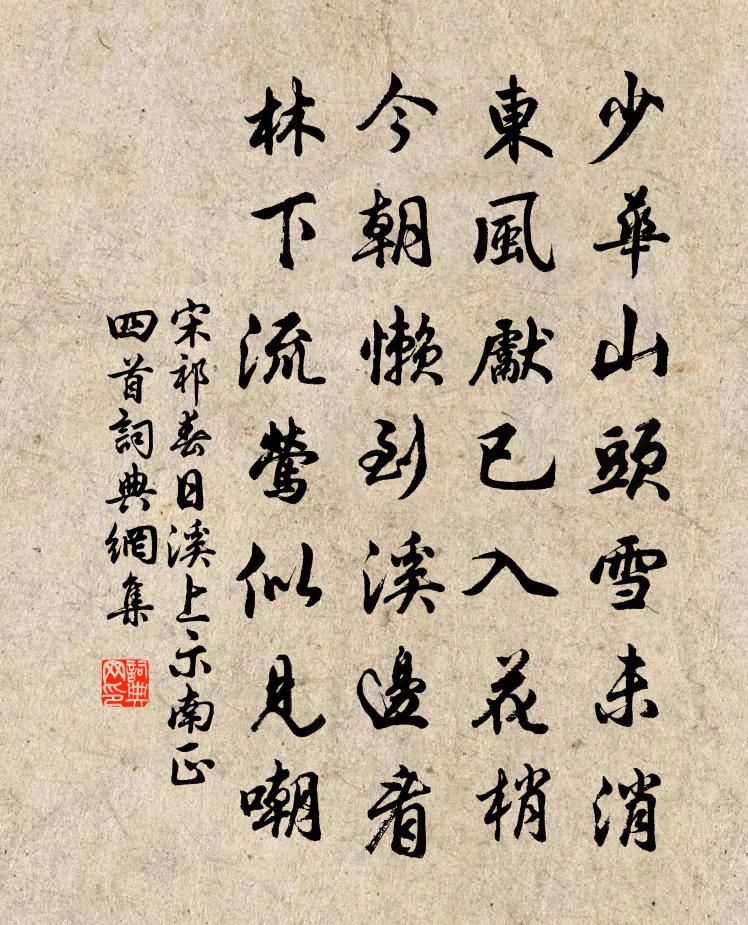 少華山頭雪未消
東風獻已入花梢
今朝懶到溪邊看
林下流鶯似見嘲
宋祁春日溪上示南正
四首詞典網集
詞典
网印